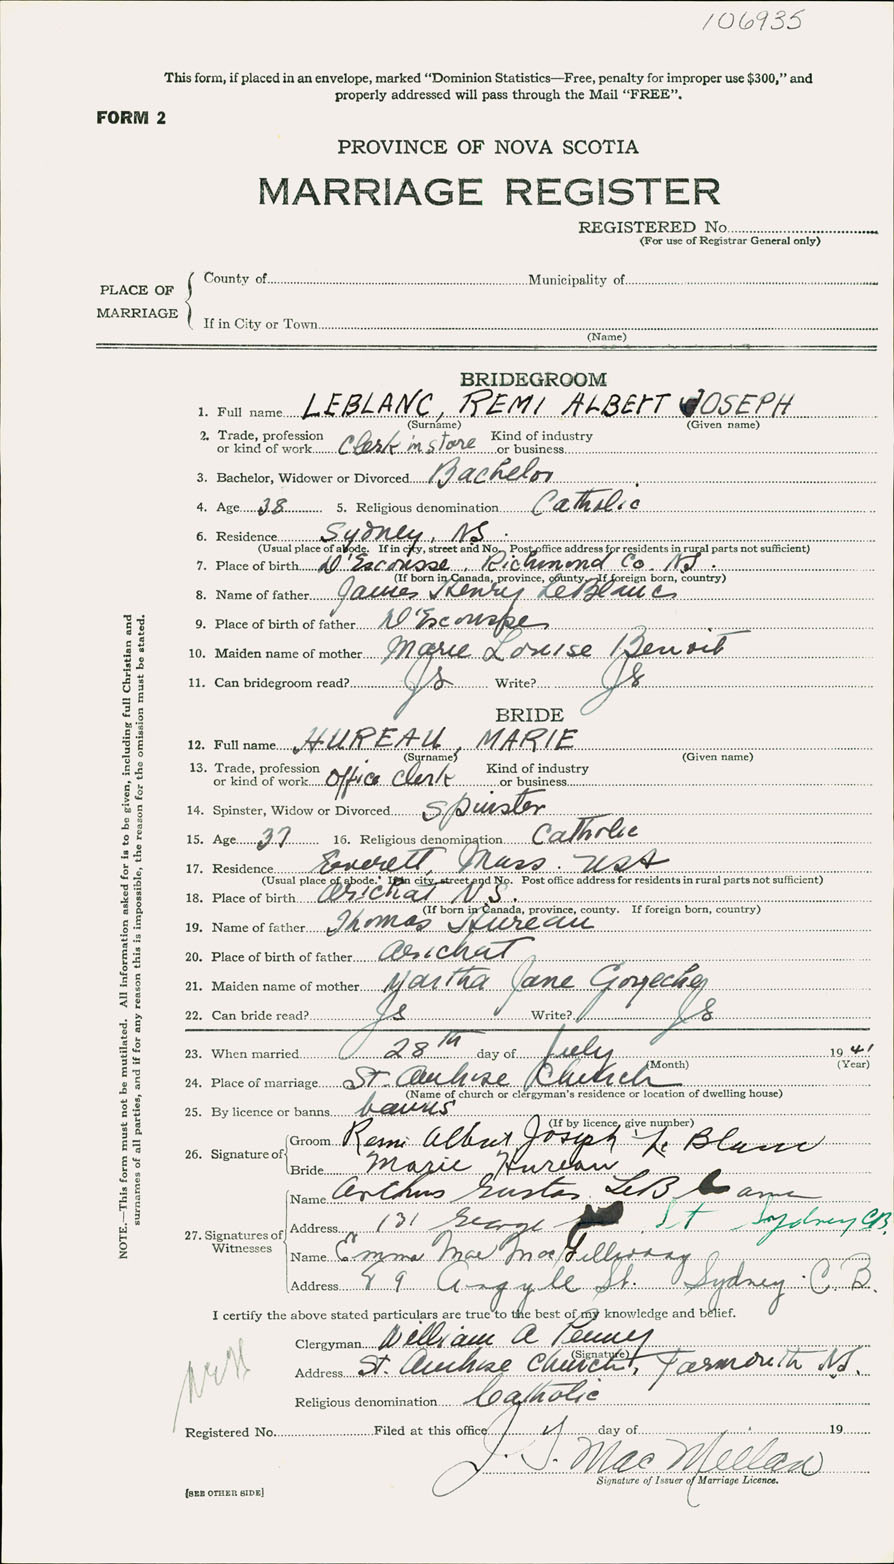 106935
This form, if placed in an envelope, marked “Dominion Statistics—Free, penalty for improper use $300,” and
properly addressed will pass through the Mail “FREE”.
FORM 2
PROVINCE OF NOVA SCOTIA
MARRIAGE REGISTER
REGISTERED No.
(For use of Registrar General only)
PLACE OF MARRIAGE
County of Municipality of
If in City or Town
(Name)
BRIDEGROOM
1. Full name LEBLANC, REMI ALBERT JOSEPH
(Surname) (Given name)
2. Trade, profession or kind of work Clerk in store Kind of industry or business
3. Bachelor, Widower or Divorced Bachelor
4. Age 38 5. Religious denomination Catholic
6. Residence Sydney, NS.
(Usual place of abode. If in city, street and No. Post office address for residents in rural parts not sufficient)
7. Place of birth D'Escousse, Richmond Co. NS.
(If born in Canada, province, county. If foreign born, country)
8. Name of father James Henry LeBlanc
9. Place of birth of father D'Escousse
10. Maiden name of mother Marie Louise Benoit
11. Can bridegroom read? Write?
BRIDE
12. Full name HUREAU, MARIE
(Surname) (Given name)
13. Trade, profession or kind of work office clerk Kind of industry or business
14. Spinster, Widow or Divorced Spinster
15. Age 37 16. Religious denomination Catholic
17. Residence Everett, Mass. USA
(Usual place of abode. If in city, street and No. Post office address for residents in rural parts not sufficient)
18. Place of birth Arichat N.S.
(If born in Canada, province, county. If foreign born, country)
19. Name of father Thomas Hureau
20. Place of birth of father Arichat
21. Maiden name of mother Martha Jane
22. Can bride read? Write?
23. When married 28th day of July 1941
(Month) (Year)
24. Place of marriage St. Ambrose Church
(Name of church or clergyman's residence or location of dwelling house)
25. By licence or banns banns
(If by licence, give number)
26. Signature of Groom Remi Albert Joseph Le Blanc
Bride Marie Hureau
27. Signatures of Witnesses
Name Arthur Gustas LeBlanc
Address 131 George St Sydney CB.
Name Emma Mae MacGillivray
Address 89 Argyle St. Sydney. C.B.
I certify the above stated particulars are true to the best of my knowledge and belief.
Clergyman William A Penney
(Signature)
Address St. Ambrose Church, Yarmouth NS.
Religious denomination Catholic
Registered No. Filed at this office day of 19
J. G. MacMillan
Signature of Issuer of Marriage Licence.
[SEE OTHER SIDE]
NOTE.—This form must not be mutilated. All information asked for is to be given, including full Christian and
surnames of all parties, and if for any reason this is impossible, the reason for the omission must be stated.